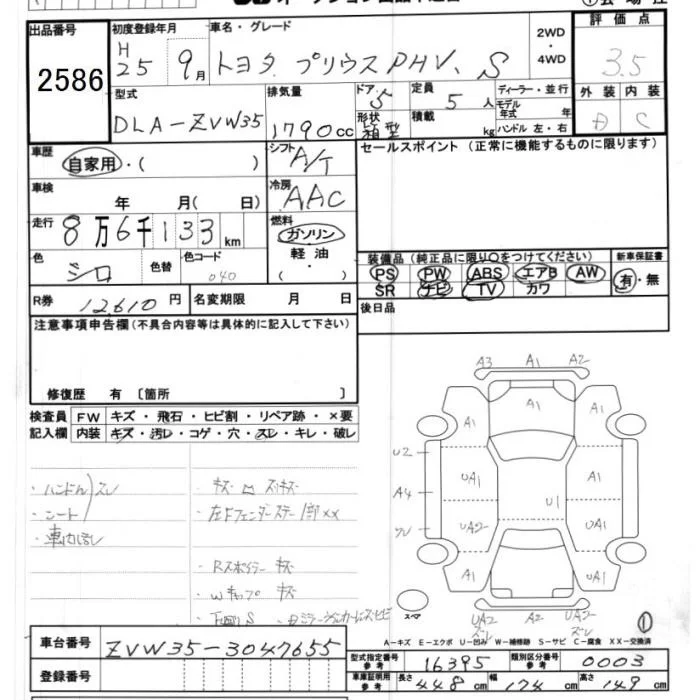 出品番号
2586
初度登録年月
H
25 9月
車名・グレード
トヨタ プリウスPHV、S
2WD
・
4WD
評価点
3.5
外装 内装
C
型式
DLA-ZVW35
排気量
1790cc
ドア
5
形状
箱型
定員
5人
積載
kg
ディーラー・並行
モデル年式 年
ハンドル 左・右
車歴
自家用・( )
シフト
A/T
セールスポイント(正常に機能するものに限ります)
車検
年 月( 日)
冷房
AAC
走行
8万6千133km
燃料
ガソリン
軽油
・
色
シロ
色替
色コード
040
装備品(純正品に限り○をつけてください)
PS PW ABS エアB AW
SR ナビ TV カワ
新車保証書
有・無
R券 12,610円
名変期限 月 日
後日品
注意事項申告欄(不具合内容等は具体的に記入して下さい)
修復歴 有〔箇所 〕
検査員
記入欄
FW キズ・飛石・ヒビ割・リペア跡・×要
内装 キズ・汚レ・コゲ・穴・スレ・キレ・破レ
・ハンドルスレ
・シート
・車内汚レ
・左Fフェンダーステー1部××
・Rスポイラー キズ
A3 A1 A2
A1
A1 A1
U2
UA1 A1
A4
U1
UA2 UA1
A1 UA1
スペア
UA2 A2 UA2
スレ スレ
①
A-キズ E-エクボ U-凹み W-補修跡 S-サビ C-腐食 XX-交換済
車台番号
ZVW35-3047655
登録番号
型式指定番号
参考
16395
類別区分番号
参考
0003
車庫証明用
参考
長さ 448cm
幅 174cm
高さ 149cm